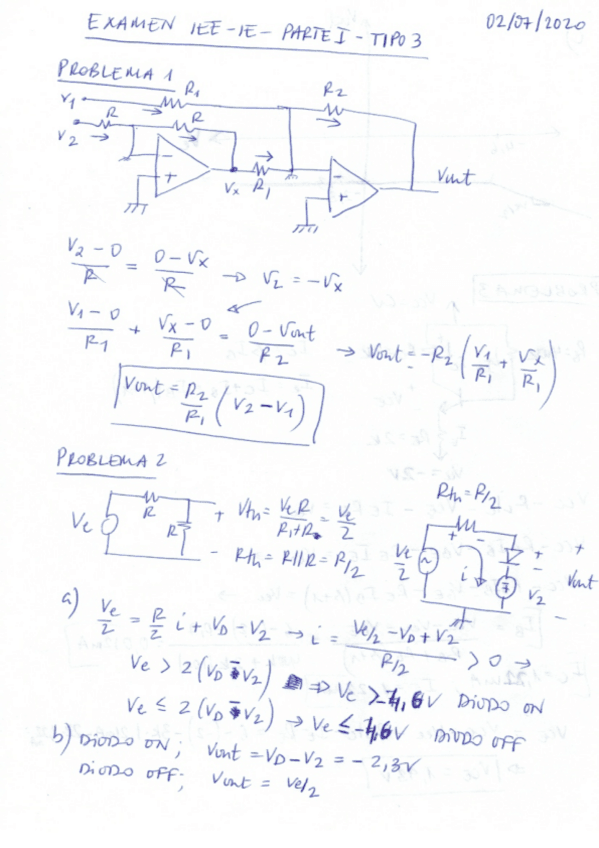 EXAMEN IEE-IE- PARTE I - TIPO 3 02/07/2020
PROBLEMA 1
V1 R1 R2
V2 R R
- + Vx R1 - + Vout
V2 - 0 / R = 0 - Vx / R → V2 = -Vx
V1 - 0 / R1 + Vx - 0 / R1 = 0 - Vout / R2 → Vout = -R2 ( V1 / R1 + Vx / R1 )
Vout = R2 / R1 ( V2 - V1 )
PROBLEMA 2
Ve R R + Vth = Ve R / R1+R = Ve / 2
- Rth = R||R = R/2
Rth = R/2
Ve / 2 + - i + - V2 + Vout -
a) Ve / 2 = R / 2 i + VD - V2 → i = Ve/2 - VD + V2 / R/2 > 0 →
Ve > 2 (VD - V2) ⇒ Ve > -4,6V DIODO ON
Ve ≤ 2 (VD - V2) → Ve ≤ -4,6V DIODO OFF
b) DIODO ON; Vout = VD - V2 = - 2,3V
DIODO OFF; Vout = Ve/2